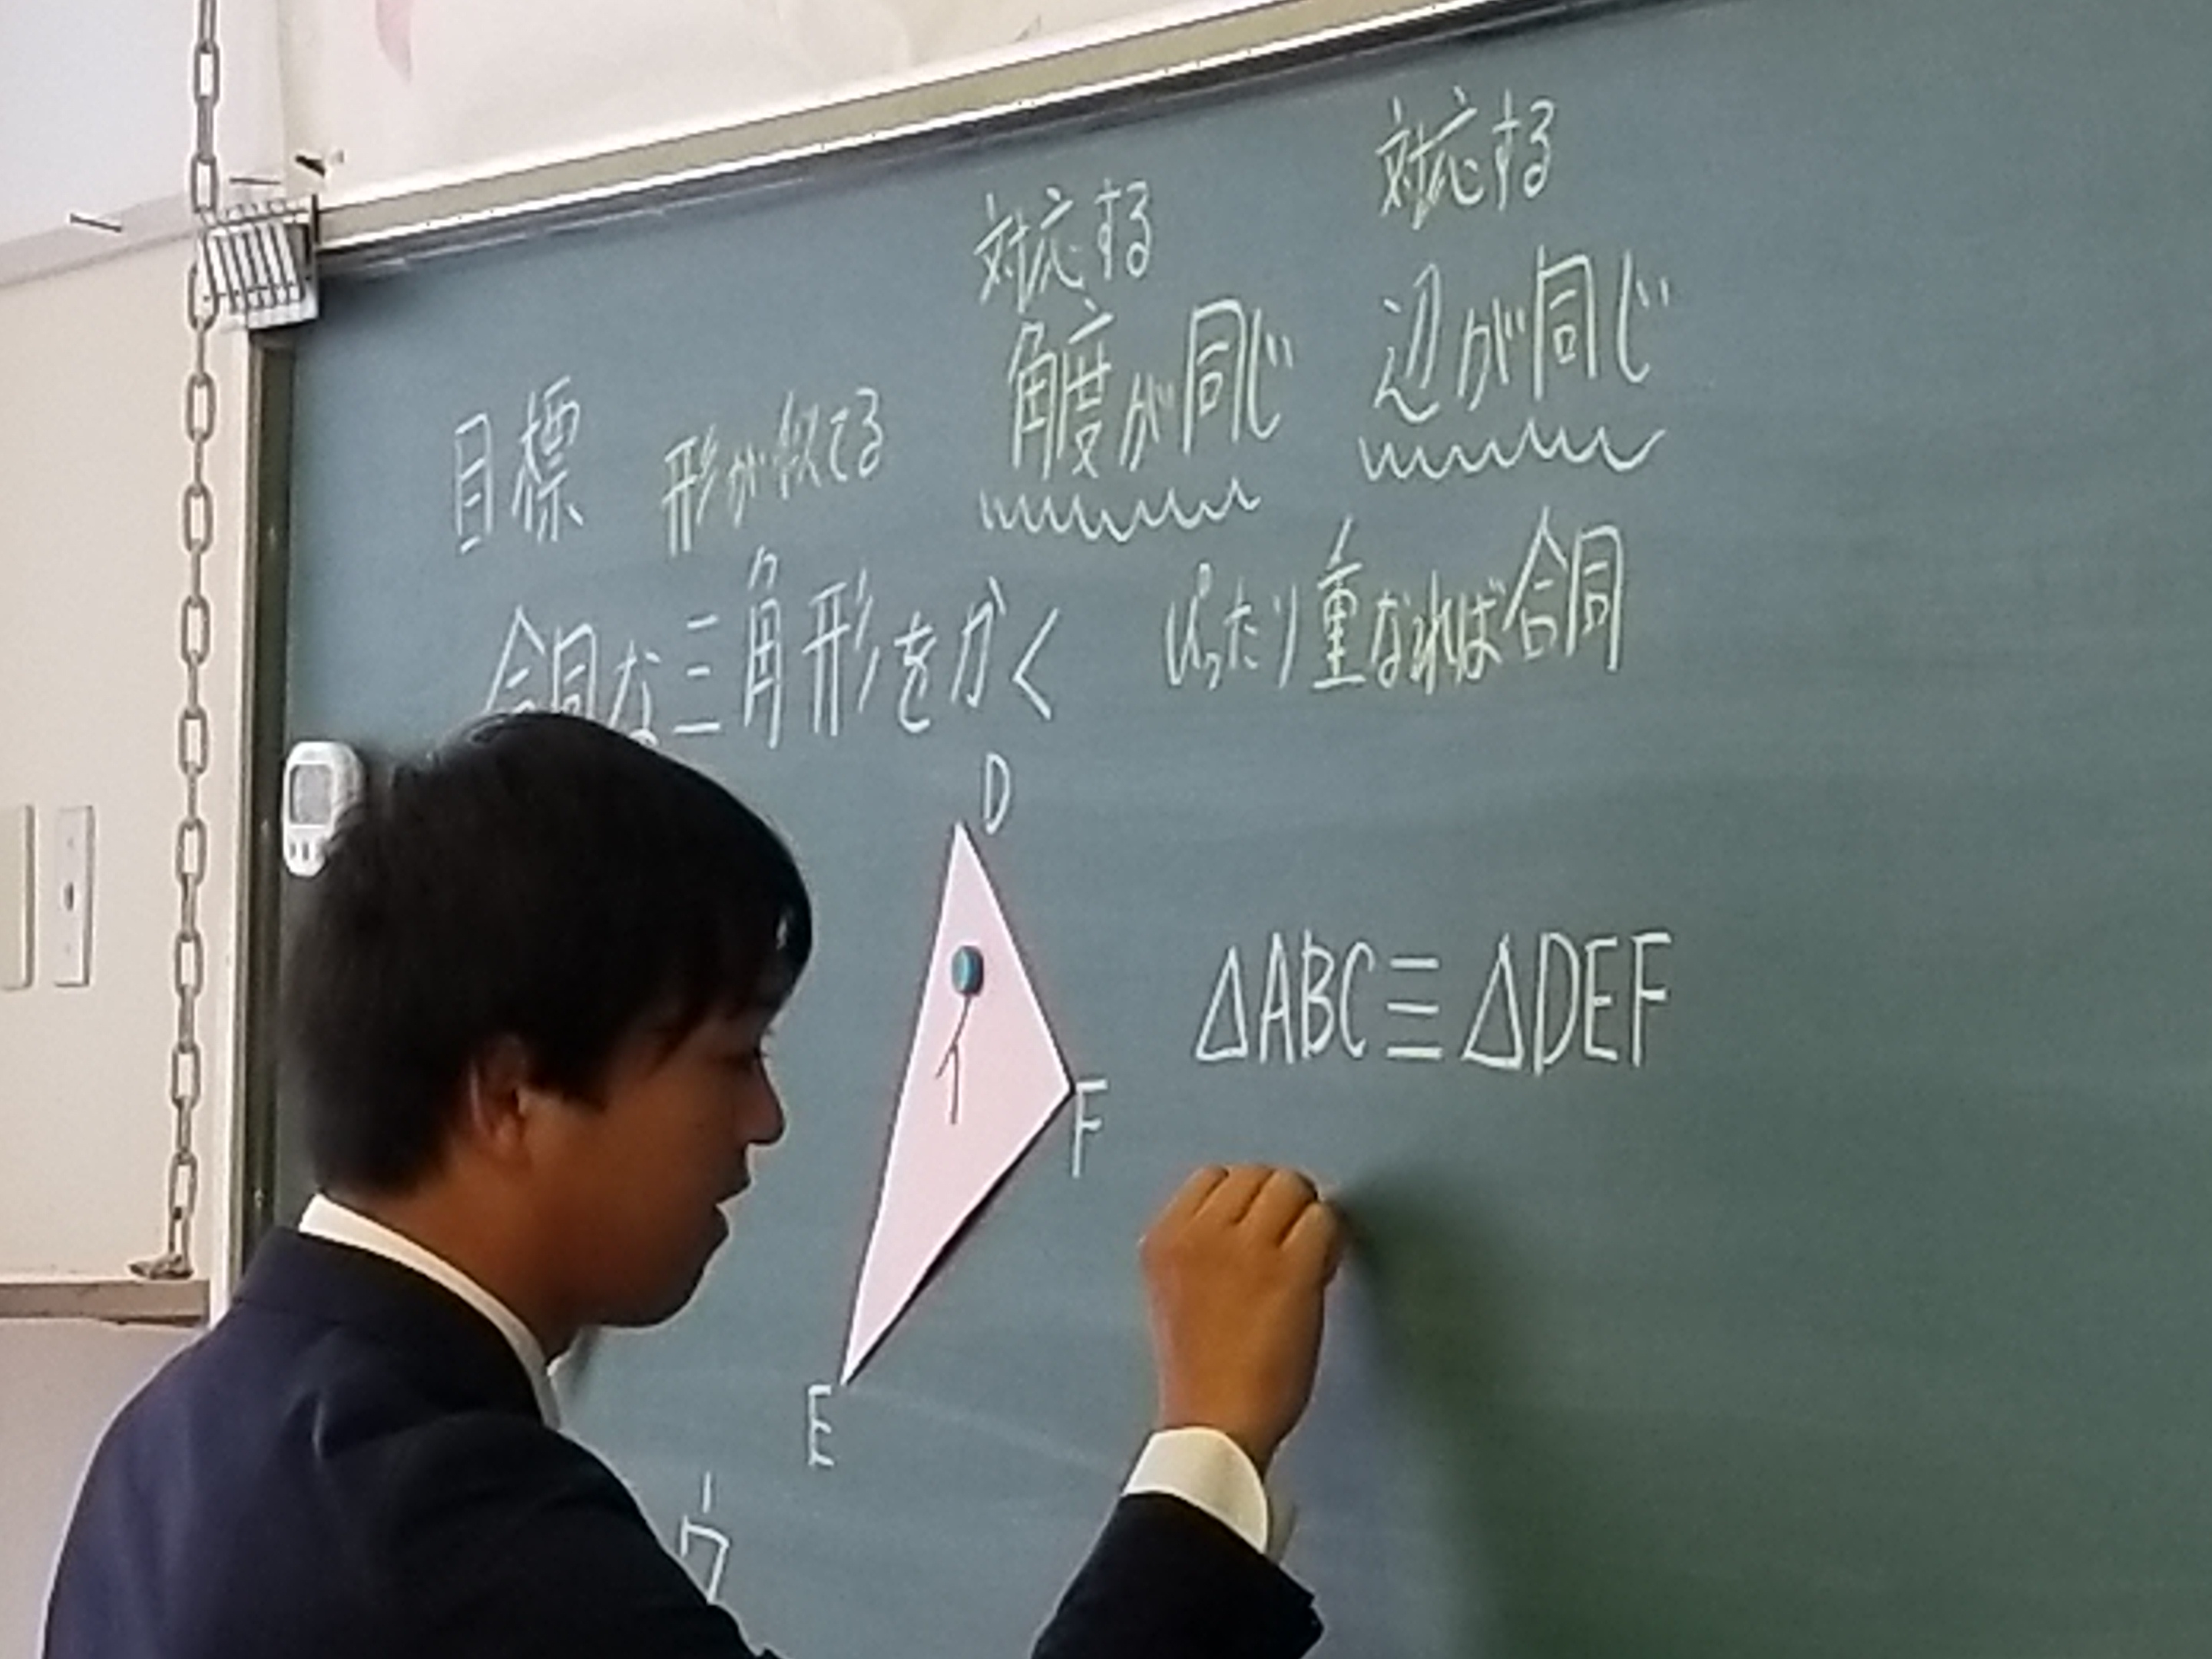 対応する
対応する
角度が同じ
辺が同じ
目標
形が似てる
合同な三角形をかく
ぴったり重なれば合同
D
F
E
イ
△ABC≡△DEF
ウ